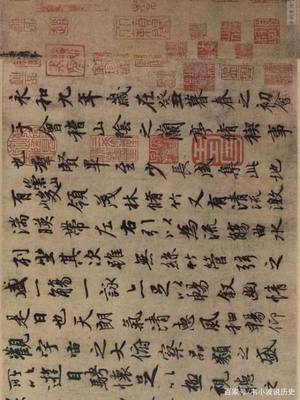 永和九年歲在癸丑暮春之初會
于會稽山陰之蘭亭脩稧事
也羣賢畢至少長咸集此地
有崇山峻領茂林脩竹又有清流激
湍暎帶左右引以為流觴曲水
列坐其次雖無絲竹管弦之
盛一觴一詠亦足以暢叙幽情
是日也天朗氣清惠風和暢仰
觀宇宙之大俯察品類之盛
所以遊目騁懷足以極視聽之
百家号/小波说历史